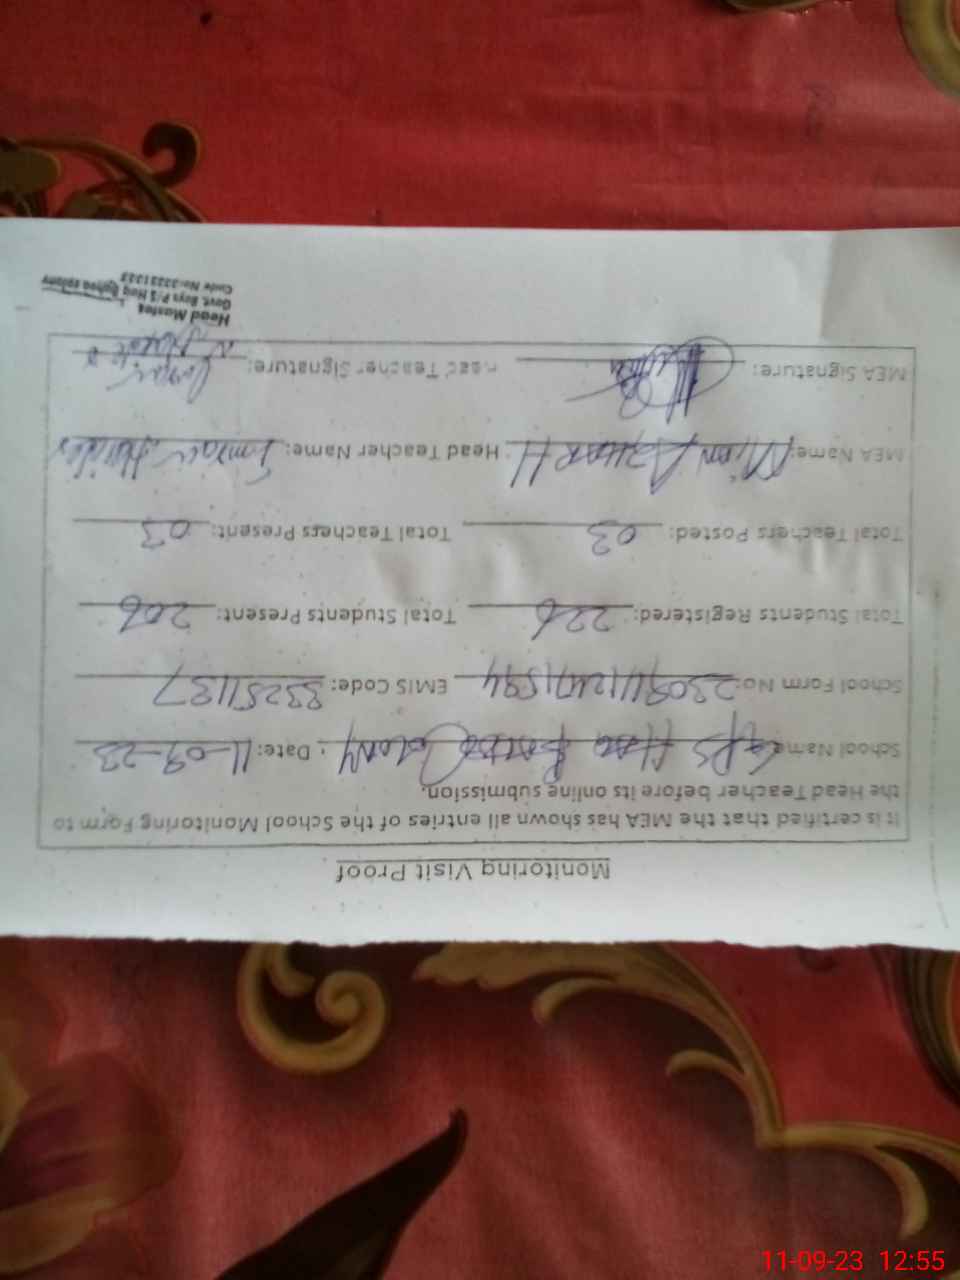 Monitoring Visit Proof
It is certified that the MEA has shown all entries of the School Monitoring Form to
the Head Teacher before its online submission.
School Name: GPS Colony Date: 11-09-23
School Form No: EMIS Code: 33251137
Total Students Registered: 226 Total Students Present: 206
Total Teachers Posted: 03 Total Teachers Present: 03
MEA Name: Mian Head Teacher Name: Imran
MEA Signature: Head Teacher Signature:
Head Master
Govt. Boys P/S Colony
Code No:
11-09-23 12:55